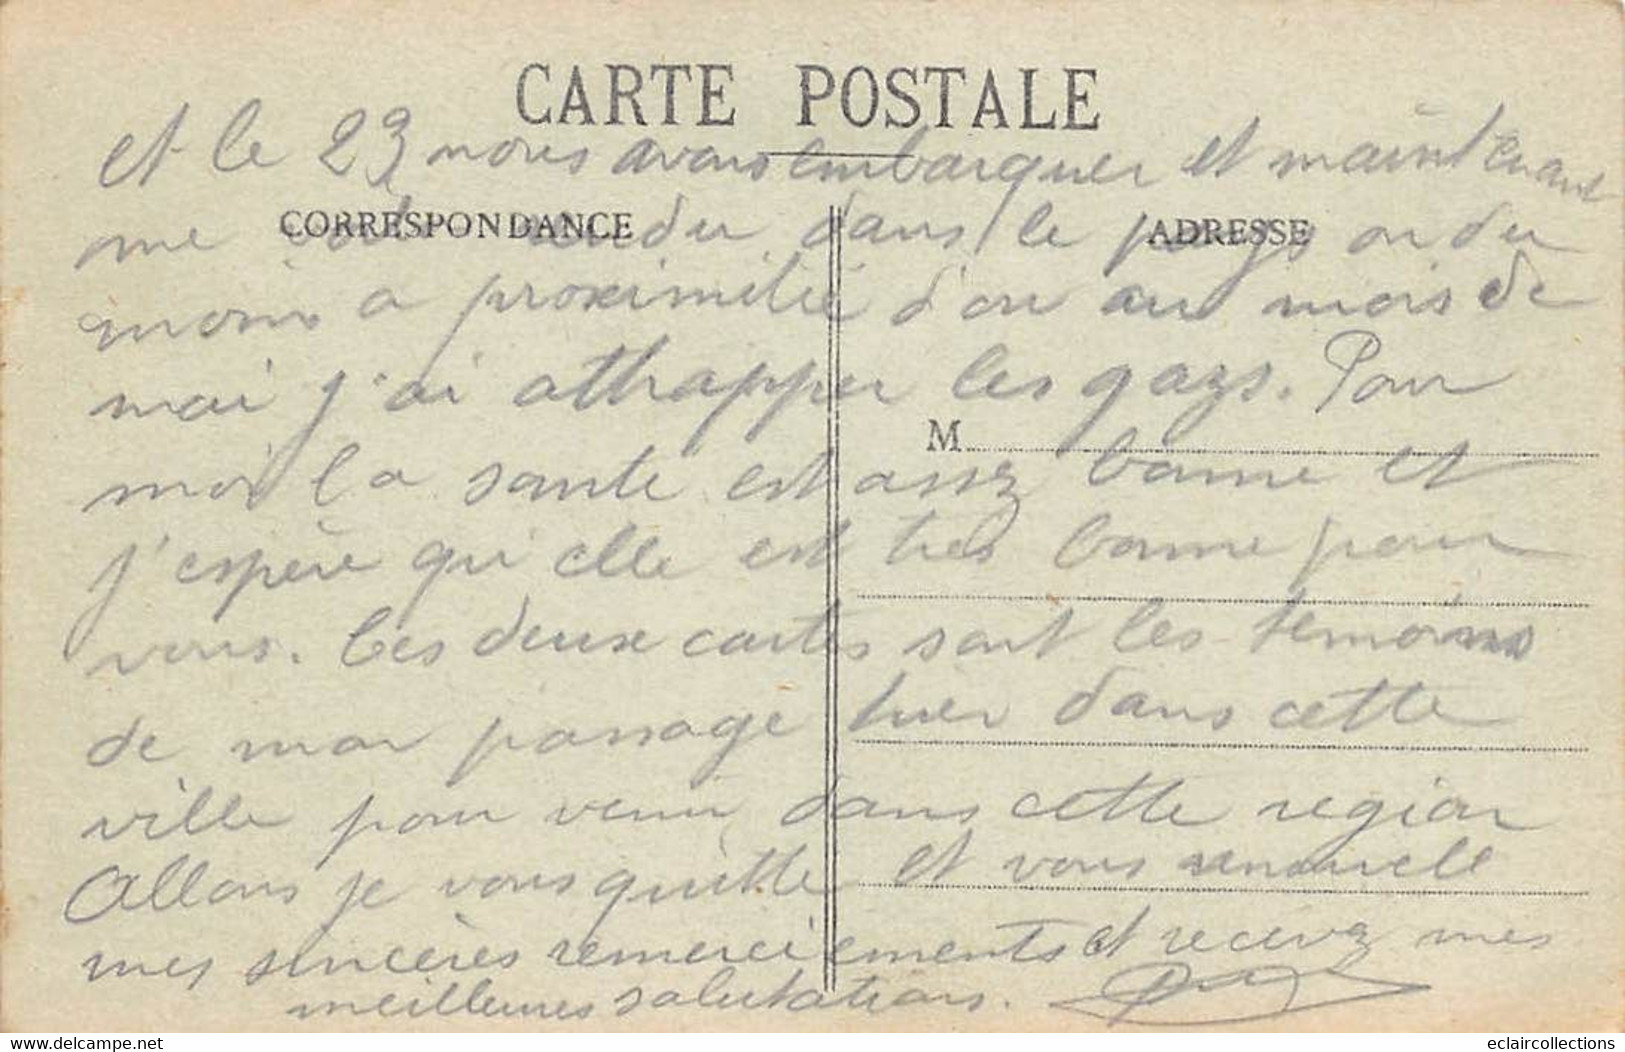 CARTE POSTALE
et le 23 nous avons embarquer et maintenant
CORRESPONDANCE
ADRESSE
me voila rendu dans le pays ou du
moins a proximitié d'ou au mois de
mai j'ai attrapper les gazs. Pour
M
moi la sante est assez bonne et
j'espère qu'elle est tres bonne pour
vous. Ces deux cartes sont les temoins
de mon passage hier dans cette
ville pour venir dans cette region
Allons je vous quitte et vous renouvelle
mes sincères remerciements et recevez mes
meilleures salutations.
www.delcampe.net
eclaircollections